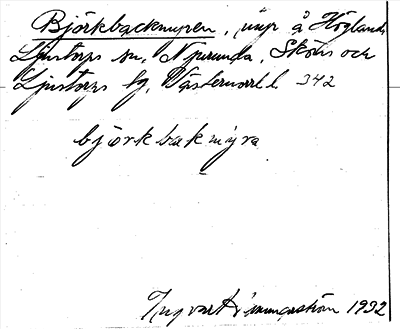 Björkbackmyren, myr å Högland,
Ljustorps sn, Njurunda, Sköns och
Ljustorps tg, Västernorrl. l. 342
björkbakmýra
Ingvart 1932